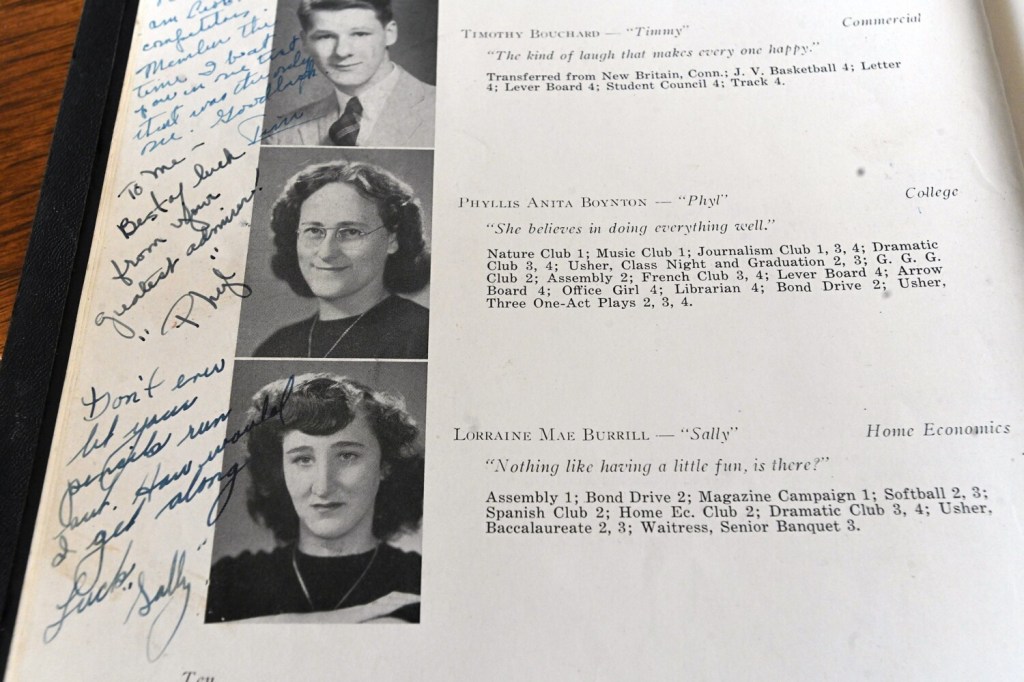 am
competitors.
Member the
time I beat
you in one test
that was the only
one. Goodluck
Tim
Timothy Bouchard — "Timmy"
Commercial
"The kind of laugh that makes every one happy."
Transferred from New Britain, Conn.; J. V. Basketball 4; Letter
4; Lever Board 4; Student Council 4; Track 4.
To me —
Best of luck
from your
greatest admirer!
"Phyl"
Phyllis Anita Boynton — "Phyl"
College
"She believes in doing everything well."
Nature Club 1; Music Club 1; Journalism Club 1, 3, 4; Dramatic
Club 3, 4; Usher, Class Night and Graduation 2, 3; G. G. G.
Club 2; Assembly 2; French Club 3, 4; Lever Board 4; Arrow
Board 4; Office Girl 4; Librarian 4; Bond Drive 2; Usher,
Three One-Act Plays 2, 3, 4.
Don't ever
let your
pencils run
out. How would
I get along
Luck,
"Sally"
Lorraine Mae Burrill — "Sally"
Home Economics
"Nothing like having a little fun, is there?"
Assembly 1; Bond Drive 2; Magazine Campaign 1; Softball 2, 3;
Spanish Club 2; Home Ec. Club 2; Dramatic Club 3, 4; Usher,
Baccalaureate 2, 3; Waitress, Senior Banquet 3.
Ten